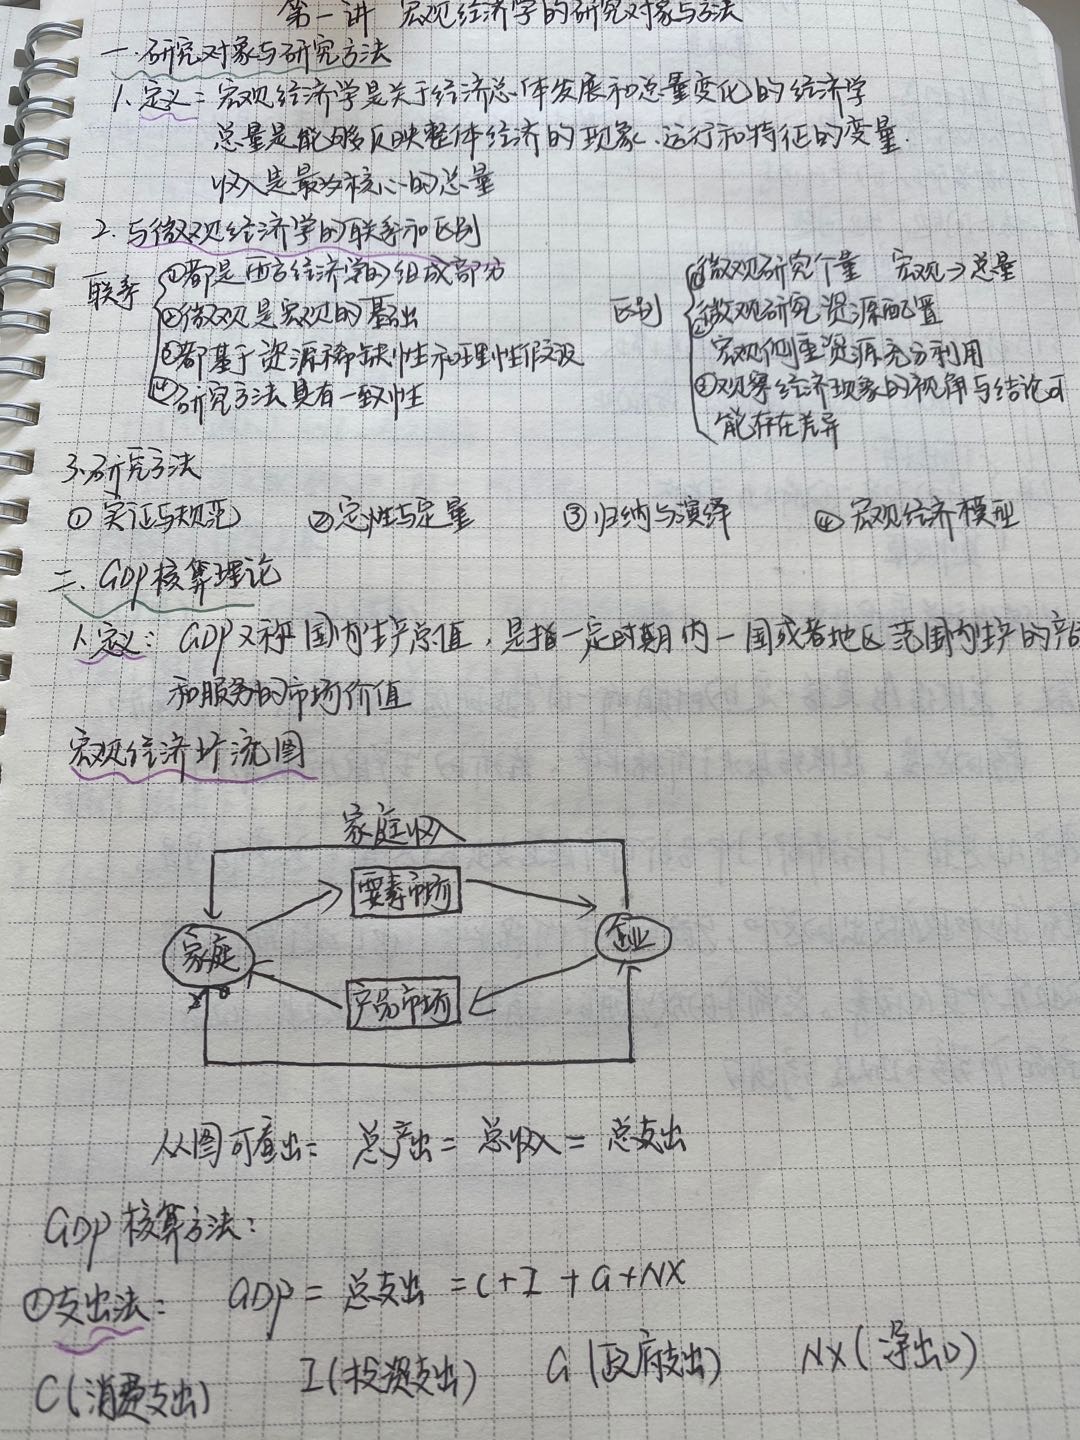 第一讲 宏观经济学的研究对象与方法
一.研究对象与研究方法
1.定义:宏观经济学是关于经济总体发展和总量变化的经济学
总量是能够反映整体经济的现象、运行和特征的变量.
收入是最为核心的总量
2.与微观经济学的联系和区别
联系
①都是西方经济学的组成部分
②微观是宏观的基础
③都基于资源稀缺性和理性假设
④研究方法具有一致性
区别
①微观研究个量 宏观→总量
②微观研究资源配置
宏观侧重资源充分利用
③观察经济现象的视角与结论可
能存在差异
3.研究方法
①实证与规范 ②定性与定量 ③归纳与演绎 ④宏观经济模型
二、GDP核算理论
1.定义:GDP又称国内生产总值,是指一定时期内一国或者地区范围内生产的产品
和服务的市场价值
宏观经济环流图
家庭收入
要素市场
家庭
企业
产品市场
从图可看出: 总产出=总收入=总支出
GDP核算方法:
①支出法: GDP=总支出=C+I+G+NX
C(消费支出) I(投资支出) G(政府支出) NX(净出口)